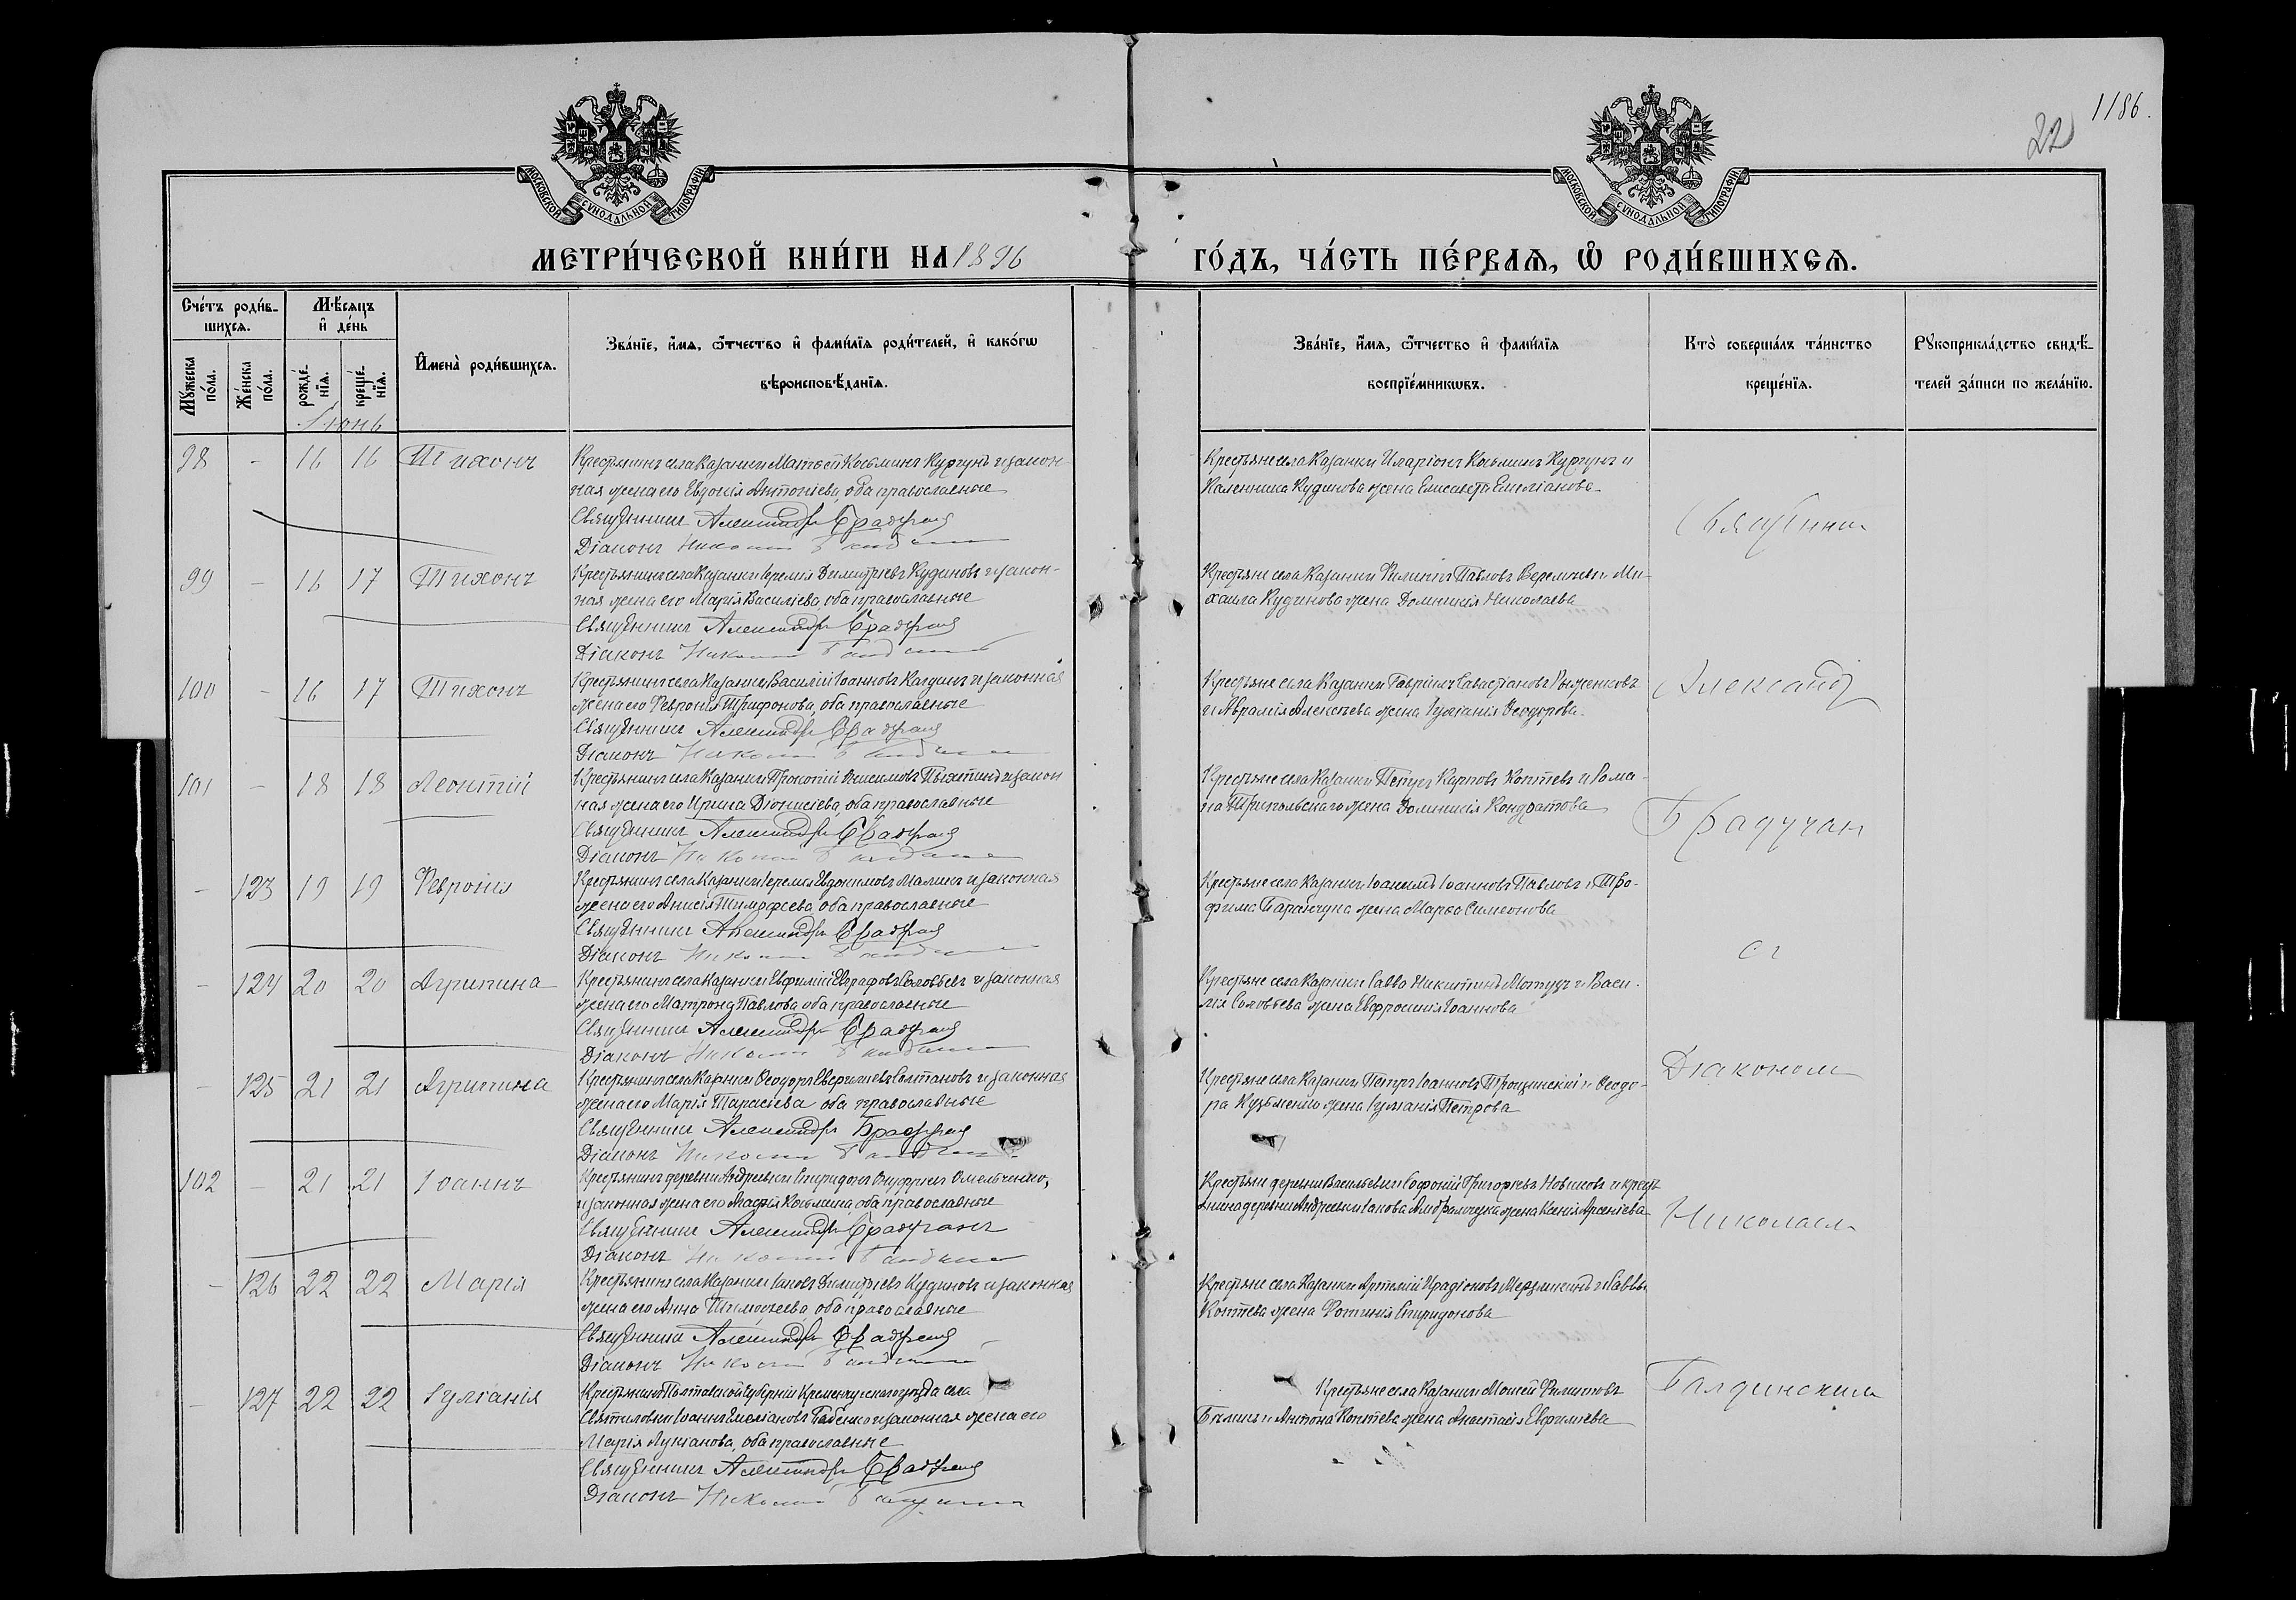 1186.
22
МОСКОВСКОЙ СѴНОДАЛЬНОЙ ТИПОГРАФІИ
МОСКОВСКОЙ СѴНОДАЛЬНОЙ ТИПОГРАФІИ
МЕТРИ́ЧЕСКОЙ КНИ́ГИ НА 1896 ГО́ДЪ, ЧА́СТЬ ПЕ́РВАЯ, Ѡ҆ РОДИ́ВШИХСЯ.
Сче́тъ роди́в-
шихся.
Мѣ́сяцъ
и҆ де́нь
Мꙋ́жеска по́ла.
Же́нска по́ла.
рожде́-нїя.
креще́-нїя.
И҆мена̀ роди́вшихся.
Зва́нїе, и҆́мя, ѻ҆́тчество и҆ фами́лїя роди́телей, и҆ како́гѡ
вѣроисповѣ́данїя.
Зва́нїе, и҆́мя, ѻ҆́тчество и҆ фами́лїя
воспрїе́мникѡвъ.
Кто̀ соверша́лъ та́инство
креще́нїя.
Рꙋкоприкла́дство свидѣ́-
телей за́писи по жела́нїю.
Іюнь
98 - 16 16 Тихонъ
Крестьянинъ села Казанки Матѳей Косьминъ Кургунъ и закон-
ная жена его Евдокія Антоніева, оба православные
Священникъ Александръ
Діаконъ Николай
Крестьяне села Казанки Иларіонъ Косьминъ Кургунъ и
Каленника Кудинова жена Елисавета Емеліанова
99 - 16 17 Тихонъ
Крестьянинъ села Казанки Іеремія Димитріевъ Кудиновъ и закон-
ная жена его Марія Василіева, оба православные
Священникъ Александръ
Діаконъ Николай
Крестьяне села Казанки Филиппъ Павловъ и Ми-
хаила Кудинова жена Домникія Николаева
100 - 16 17 Тихонъ
Крестьянинъ села Казанки Василій Іоанновъ и законная
жена его Февронія Трифонова, оба православные
Священникъ Александръ
Діаконъ Николай
Крестьяне села Казанки Гавріилъ Савастіановъ
и Аврамія Алексѣева жена Іуліанія Ѳеодорова
101 - 18 18 Леонтій
Крестьянинъ села Казанки Прокопій Онисимовъ и закон
ная жена его Ирина Діонисіева, оба православные
Священникъ Александръ
Діаконъ Николай
Крестьяне села Казанки Петръ Карповъ Коптевъ и Рома-
на Трипольскаго жена Домникія Кондратова
- 123 19 19 Февронія
Крестьянинъ села Казанки Іеремія Евдокимовъ Малинъ и законная
жена его Анисія Тимоѳеева, оба православные
Священникъ Александръ
Діаконъ Николай
Крестьяне села Казанки Іоакимъ Іоанновъ Павловъ и Тро-
фима Баранчука жена Марѳа Симеонова
- 124 20 20 Агрипина
Крестьянинъ села Казанки Евфимій Евграфовъ Соловьевъ и законная
жена его Матрона Павлова, оба православные
Священникъ Александръ
Діаконъ Николай
Крестьяне села Казанки Савва Никитинъ Мотузъ и Васи-
лія Соловьева жена Евфросинія Іоаннова
- 125 21 21 Агрипина
Крестьянинъ села Казанки Ѳеодоръ Евфиміевъ Солтановъ и законная
жена его Марія Тарасіева оба православные
Священникъ Александръ
Діаконъ Николай
Крестьяне села Казанки Петръ Іоанновъ Трощинскій и Ѳеодо-
ра Кузьменко жена Іуліанія Петрова
102 - 21 21 Іоаннъ
Крестьянинъ деревни Андреевки Спиридонъ Онуфріевъ Омельченко,
и законная жена его Агафія Косьмина, оба православные
Священникъ Александръ Брадучанъ
Діаконъ Николай
Крестьяне деревни Васильевки Софоній Григорьевъ Новиковъ и крест
янина деревни Андреевки Іакова жена Ксенія Арсеніева
- 126 22 22 Марія
Крестьянинъ села Казанки Іаковъ Димитріевъ Кудиновъ и законная
жена его Анна Тимоѳеева, оба православные
Священникъ Александръ
Діаконъ Николай
Крестьяне села Казанки Артемій Иродіоновъ и Саввы
Коптева жена Фотинія Спиридонова
- 127 22 22 Іуліанія
Крестьянинъ Полтавской губерніи Кременчугскаго уѣзда села
Святиловки Іоаннъ Емеліановъ Бабенко и законная жена его
Марія Лукіанова, оба православные
Священникъ Александръ
Діаконъ Николай
Крестьяне села Казанки Моѵсей Филиповъ
и Антона Коптева жена Анастасія Евфиміева
Священникъ
Александръ
Брадучан
съ
Діакономъ
Николаемъ
Балдинскимъ